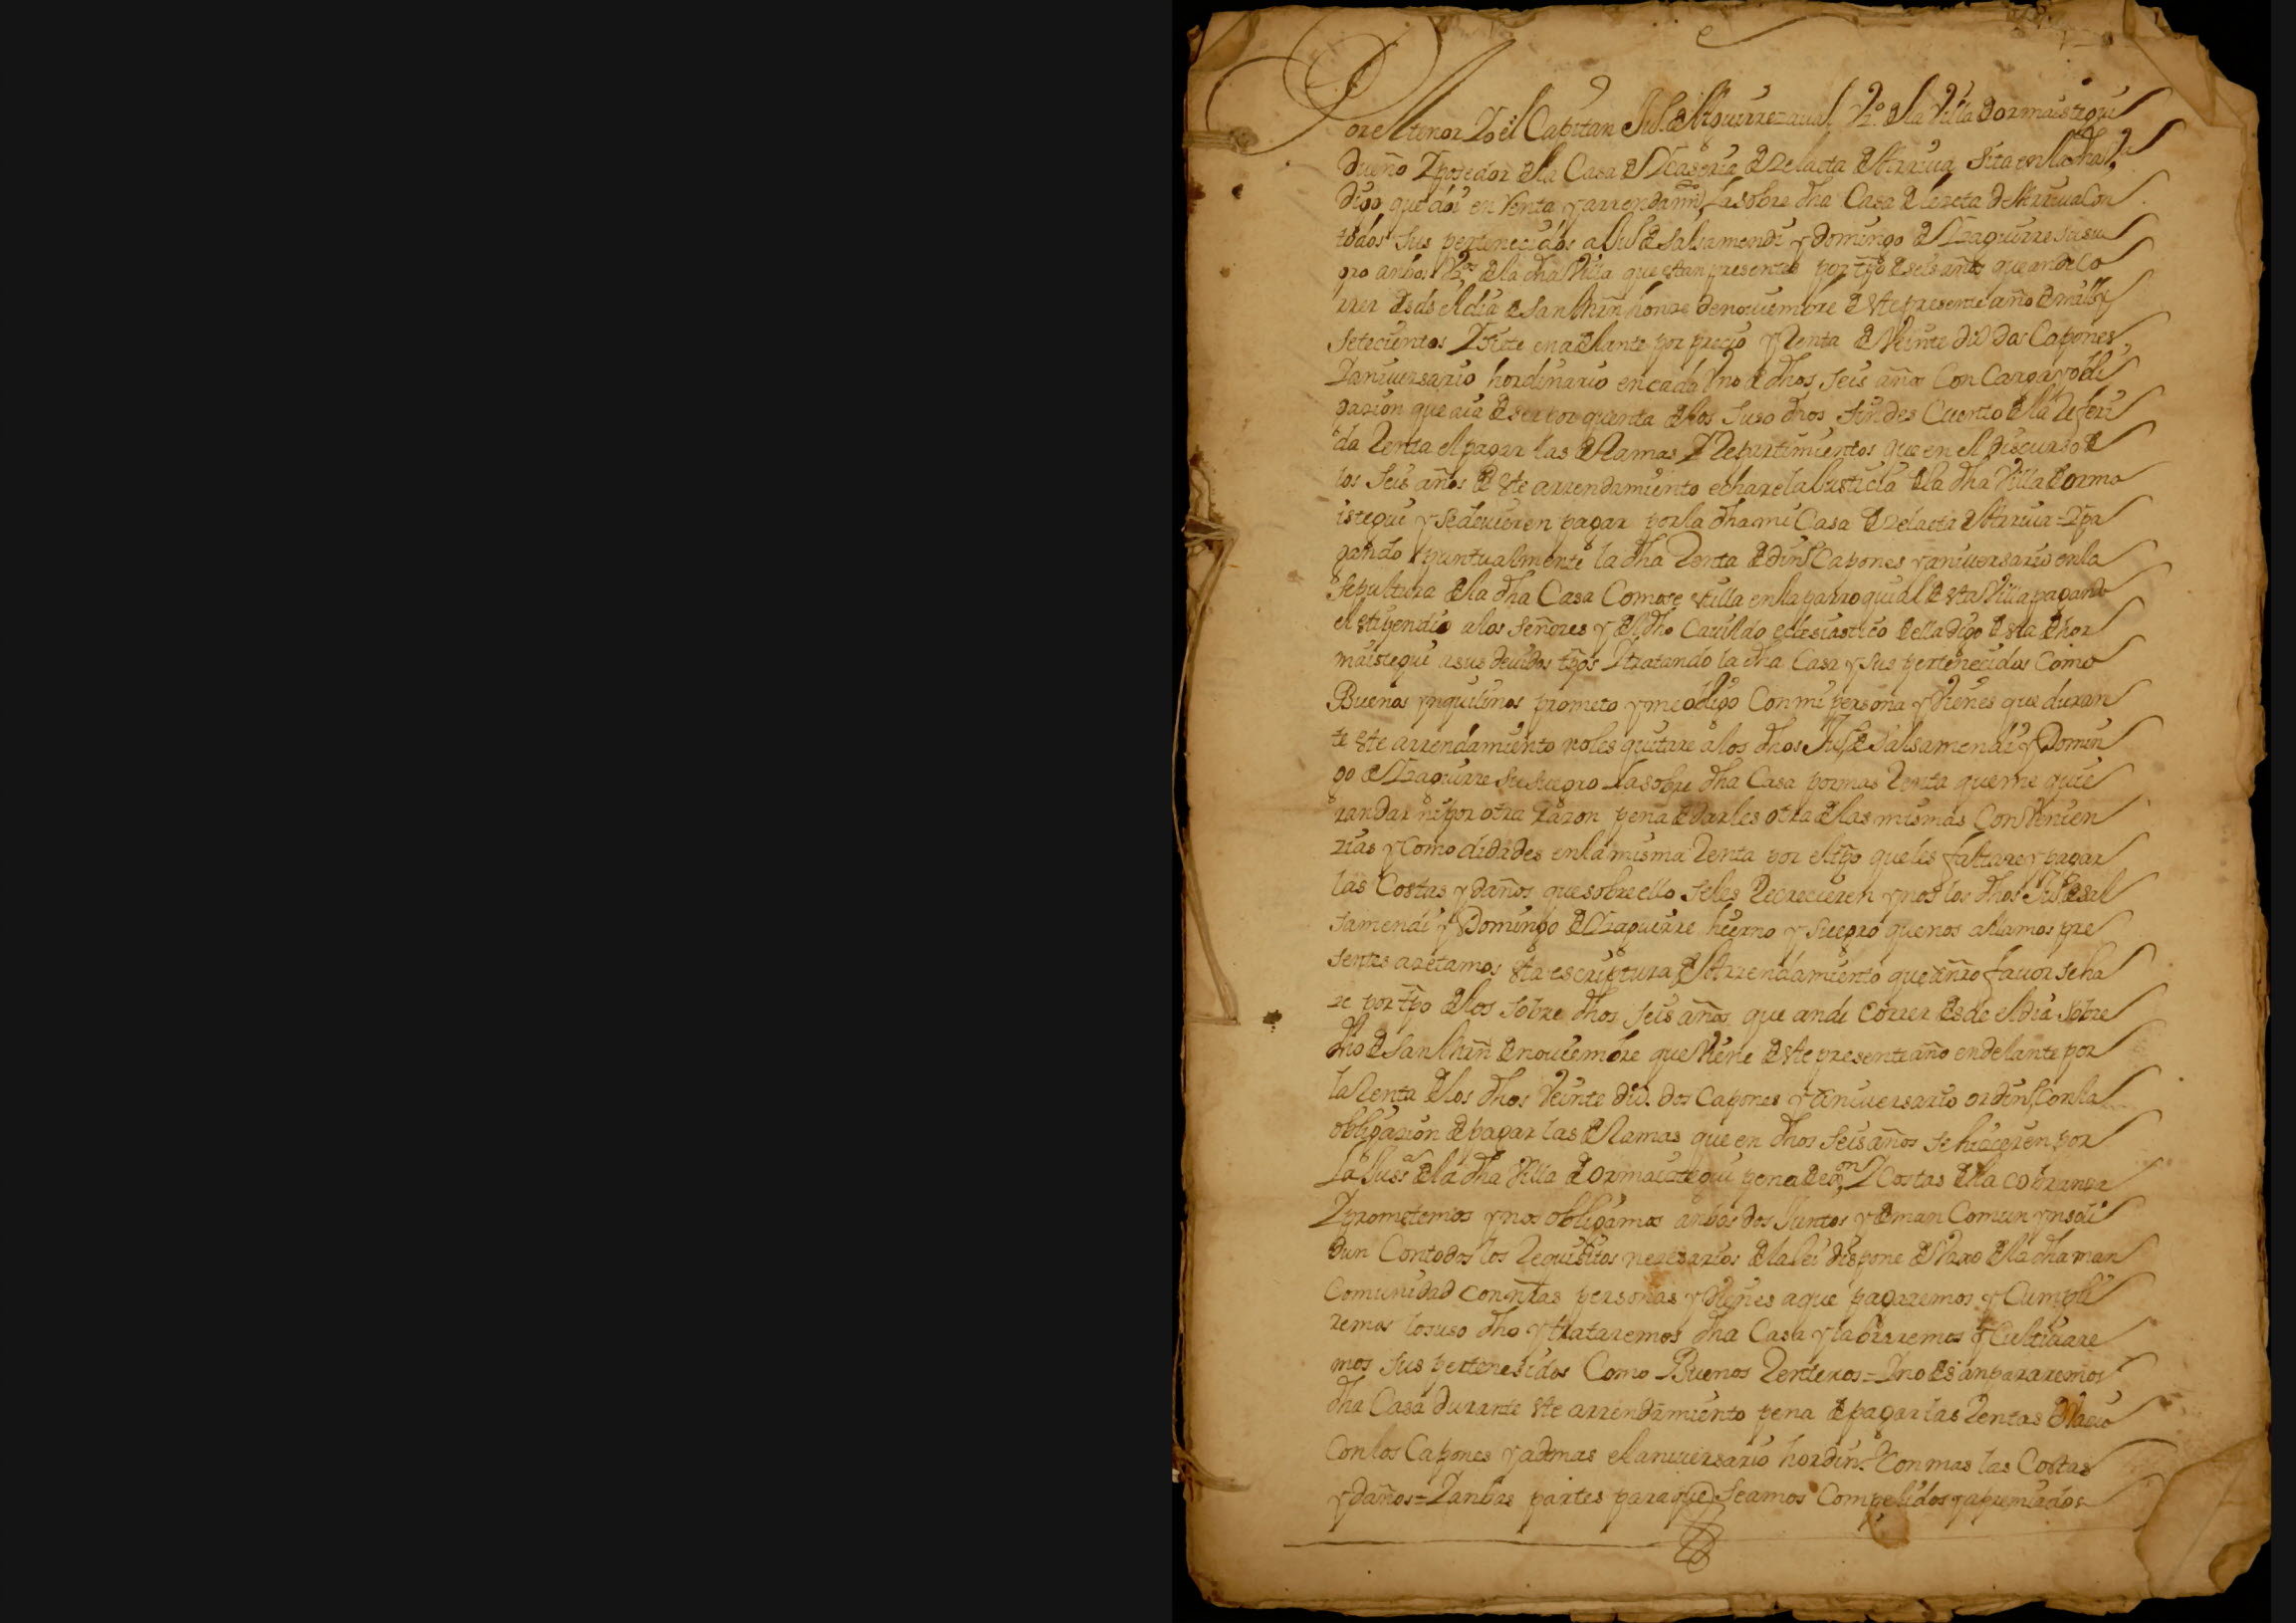 Por el tenor Yo el Capitan Ju.º de Aguirrezaual Vz.º de la Villa de ormaistegui
Dueño Y posedor de la Casa de Zelaeta de Arriua Sita en la dha Va
Digo que doi en Renta y arrendamto, la sobre dha Casa de Celaeta de Arriua Con
todos sus pertenecidos a Ju.º de Salsamendi y Domingo de Yzaguirre su sue
gro anbos Vz.os de la dha Villa que estan presentes por tpo de seis años que an de co
rrer desde el dia de San Mrn honze de nouiembre de este presente año de mill y
setecientos Y siete en adelante por precio y Renta de Veinte du.s dos Capones,
Y aniversario hordinario en cada Vno de dhos seis años Con Carga y obli
gazion que aia de ser por quenta de los suso dhos sin des Cuento de la Referi
da Renta el pagar las derramas Y Repartimientos que en el discurso de
los seis años de este arrendamiento echare la Justicia de la dha Villa de orma
istegui y se deuieren pagar por la dha mi Casa de Zelaeta de Arriua = Y pa
gando puntualmente la dha Renta de din.º Capones y aniuersario en la
sepultura de la dha Casa Como se estilla en la parroquial de esta Villa pagando
el stipendio a los señores y del dho Cauildo eclesiastico de ella digo de sta de hor
maistegui a sus deuidos tpos Y tratando la dha Casa y sus pertenecidos Como
Buenos ynquilinos prometo y me obligo Con mi persona y Vienes que duran
te este arrendamiento no les quitare a los dhos Ju.º de Salsamendi y Domin
go de Yzaguirre su suegro la sobre dha Casa por mas Renta que me quie
ran dar ni por otra Razon pena de darles otra de las mismas Conbenien
zias y Como didades en la misma Renta por el tpo que les faltare y pagar
las Costas y daños que sobre ello se les Recrecieren y nos los dhos Ju.º de Sal
samendi y Domingo de Yzaguirre hierno y suegro que nos allamos pre
sentes azetamos esta escriptura de Arrendamiento que a nro fauor se ha
ze por tpo de los sobre dhos seis años que an de correr desde el dia sobre
dho de San Mrn de nouiembre que Viene de este presente año en delante por
la Renta de los dhos Veinte du.s dos Capones y aniuersario ordin.º Con la
obligazion de pagar las derramas que en dhos seis años se hicieren por
la Jus.a de la dha Villa de Ormaiztegui pena de eon Y Costas de la cobranza
Y prometemos y nos obligamos anbos dos Juntos y de man Comun ynsoli
dun Con todos los Requisitos nezesarios de la lei dispone de Vaxo de la dha man
Comunidad con nras personas y Vienes a que pagaremos y Cumpli
remos lo suso dho y trataremos dha Casa y labraremos y Cultiuare
mos sus pertenesidos Como Buenos Renteros = Y no desanpararemos
dha Casa durante este arrendamiento pena de pagar las Rentas de Vacio
Con los Capones y ademas el aniuersario hordin.º Con mas las Costas
y daños = Y anbas partes para que seamos Compelidos y apremiados